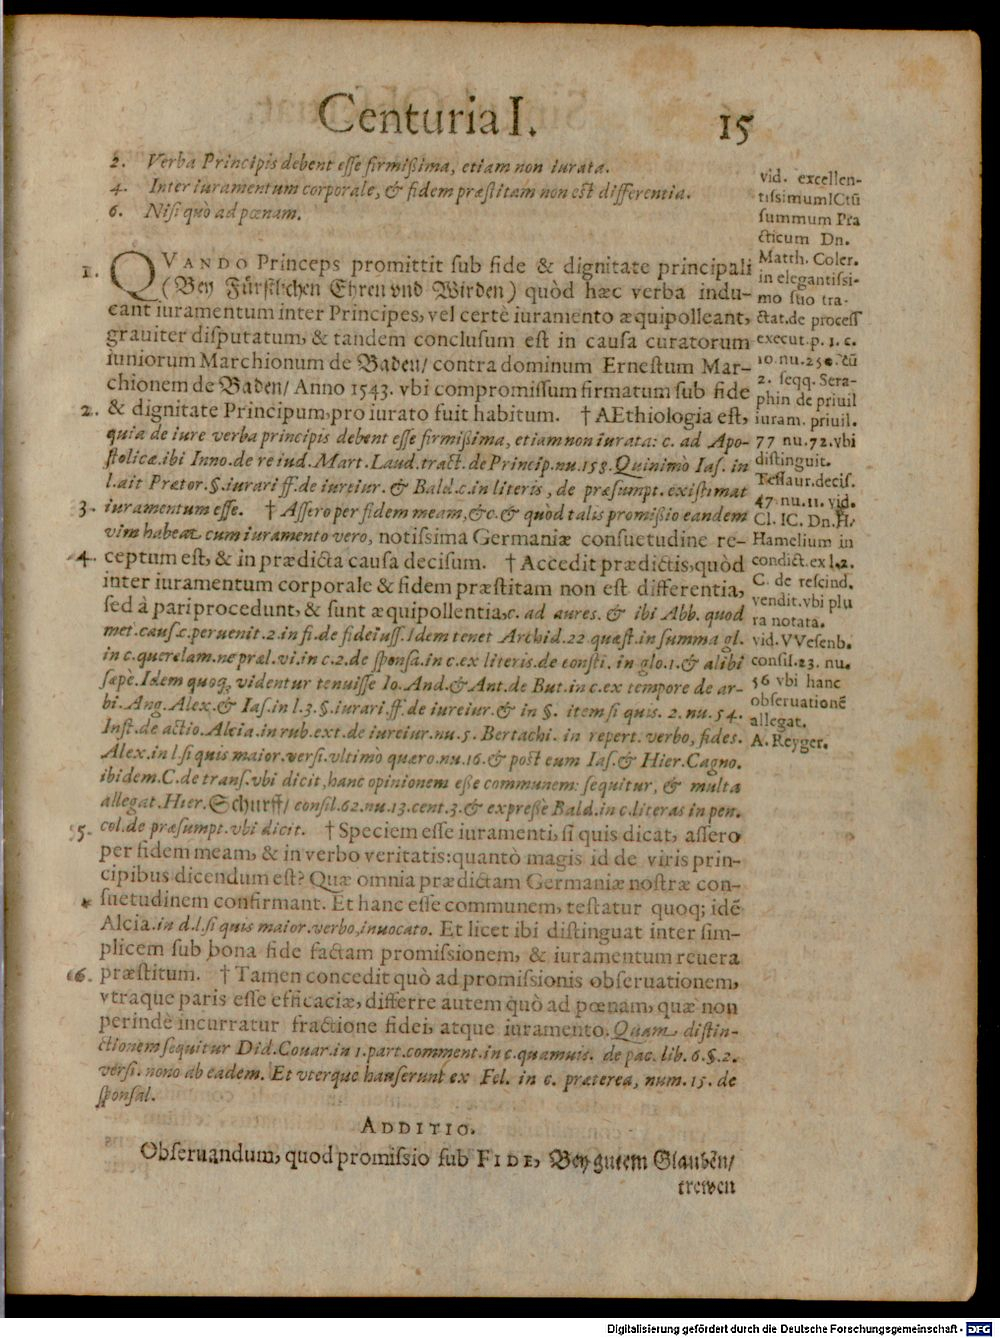 Centuria I. 15
2. Verba Principis debent esse firmißima, etiam non iurata.
4. Inter iuramentum corporale, & fidem præstitam non est differentia.
6. Nisi quò ad pœnam.
1. QVANDO Princeps promittit sub fide & dignitate principali
(Bey Fürstlichen Ehren vnd Wirden) quòd hæc verba indu-
cant iuramentum inter Principes, vel certè iuramento æquipolleant,
grauiter disputatum, & tandem conclusum est in causa curatorum
iuniorum Marchionum de Baden/ contra dominum Ernestum Mar-
chionem de Baden/ Anno 1543. vbi compromissum firmatum sub fide
2. & dignitate Principum, pro iurato fuit habitum. † AEthiologia est,
quia de iure verba principis debent esse firmißima, etiam non iurata: c. ad Apo-
stolicæ. ibi Inno. de re iud. Mart. Laud. tract. de Princip. nu. 158. Quinimò Ias. in
l. ait Prætor. §. iurari ff. de iureiur. & Bald. c. in literis, de præsumpt. existimat
3. iuramentum esse. † Assero per fidem meam, &c. & quòd talis promißio eandem
vim habeat cum iuramento vero, notissima Germaniæ consuetudine re-
4. ceptum est, & in prædicta causa decisum. † Accedit prædictis, quòd
inter iuramentum corporale & fidem præstitam non est differentia,
sed à pari procedunt, & sunt æquipollentia, c. ad aures. & ibi Abb. quod
met. caus. c. peruenit. 2. in fi. de fideiuss. Idem tenet Archid. 22 quæst. in summa gl.
in c. querelam. ne præl. vi. in c. 2. de sponsa. in c. ex literis. de consti. in glo. 1. & alibi
sæpè. Idem quoq; videntur tenuisse Io. And. & Ant. de But. in c. ex tempore de ar-
bi. Ang. Alex. & Ias. in l. 3. §. iurari. ff. de iureiur. & in §. item si quis. 2. nu. 54.
Inst. de actio. Alcia. in rub. ext. de iureiur. nu. 5. Bertachi. in repert. verbo, fides.
Alex. in l. si quis maior. versi. vltimò quæro. nu. 16. & post eum Ias. & Hier. Cagno.
ibidem. C. de trans. vbi dicit, hanc opinionem eße communem: sequitur, & multa
allegat. Hier. Schurff/ consil. 62. nu. 13. cent. 3. & expreßè Bald. in c. literas in pen.
5. col. de præsumpt. vbi dicit. † Speciem esse iuramenti, si quis dicat, assero
per fidem meam, & in verbo veritatis: quantò magis id de viris prin-
cipibus dicendum est? Quæ omnia prædictam Germaniæ nostræ con-
* suetudinem confirmant. Et hanc esse communem, testatur quoq; idẽ
Alcia. in d. l. si quis maior. verbo, inuocato. Et licet ibi distinguat inter sim-
plicem sub bona fide factam promissionem, & iuramentum reuera
6. præstitum. † Tamen concedit quò ad promissionis obseruationem,
vtraque paris esse efficaciæ, differre autem quò ad pœnam, quæ non
perindè incurratur fractione fidei, atque iuramento. Quam distin-
ctionem sequitur Did. Couar. in 1. part. comment. in c. quamuis. de pac. lib. 6. §. 2.
versi. nono ab eadem. Et vterque hauserunt ex Fel. in c. præterea, num. 15. de
sponsal.
ADDITIO.
Obseruandum, quod promissio sub FIDE, Bey gutem Glauben/
trewen
vid. excellen-
tissimum ICtũ
summum Pra
cticum Dn.
Matth. Coler.
in elegantissi-
mo suo tra-
ctat. de process
execut. p. 1. c.
10. nu. 256. cũ
2. seqq. Sera-
phin de priuil
iuram. priuil.
77 nu. 72. vbi
distinguit.
Tessaur. decis.
47. nu. 11. vid.
Cl. IC. Dn. H.
Hamelium in
condict. ex l. 2.
C. de rescind.
vendit. vbi plu
ra notata.
vid. VVesenb.
consil. 23. nu.
56 vbi hanc
obseruationẽ
allegat.
A. Reyger.
Digitalisierung gefördert durch die Deutsche Forschungsgemeinschaft - DFG